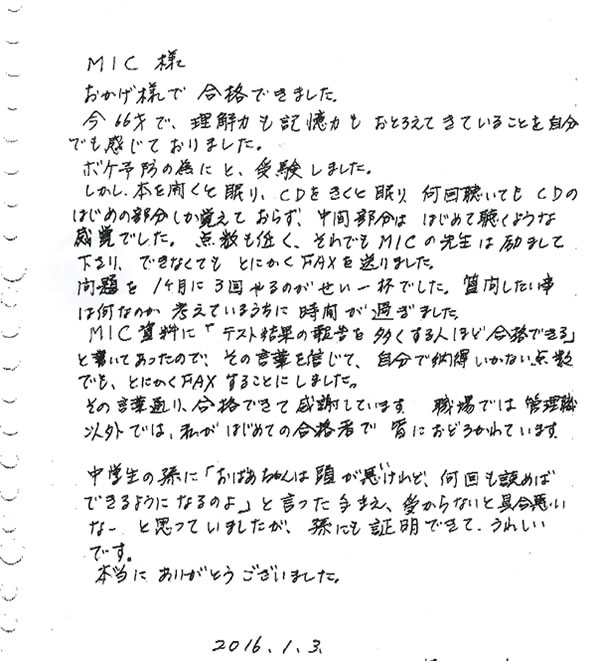 MIC 様
おかげ様で 合格できました。
今66才で、理解力も記憶力も おとろえてきていることを自分
でも感じておりました。
ボケ予防の為にと、受験しました。
しかし、本を開くと眠り、CDをきくと眠り 何回聴いても CDの
はじめの部分しか覚えて おらず、中間部分は はじめて聴くような
感覚でした。 点数も低く、それでもMICの先生は励まして
下さり、できなくても とにかくFAXを送りました。
問題を 1ヶ月に3回やるのがせい一杯でした。質問したい事
は何なのか 考えているうちに 時間が過ぎました。
MIC資料に「テスト結果の報告を多くする人ほど合格できる」
と書いてあったので、その言葉を信じて、自分で納得いかない点数
でも、とにかくFAXすることにしました。
その言葉通り、合格できて感謝しています 職場では管理職
以外では、私がはじめての合格者で 皆におどろかれています
中学生の孫に「おばあちゃんは頭が悪けれど、何回も読めば
できるようになるのよ」と言った手まえ、受からないと具合悪い
なー と思っていましたが、孫にも証明できて、うれしい
です。
本当に ありがとうございました。
2016.1.3.